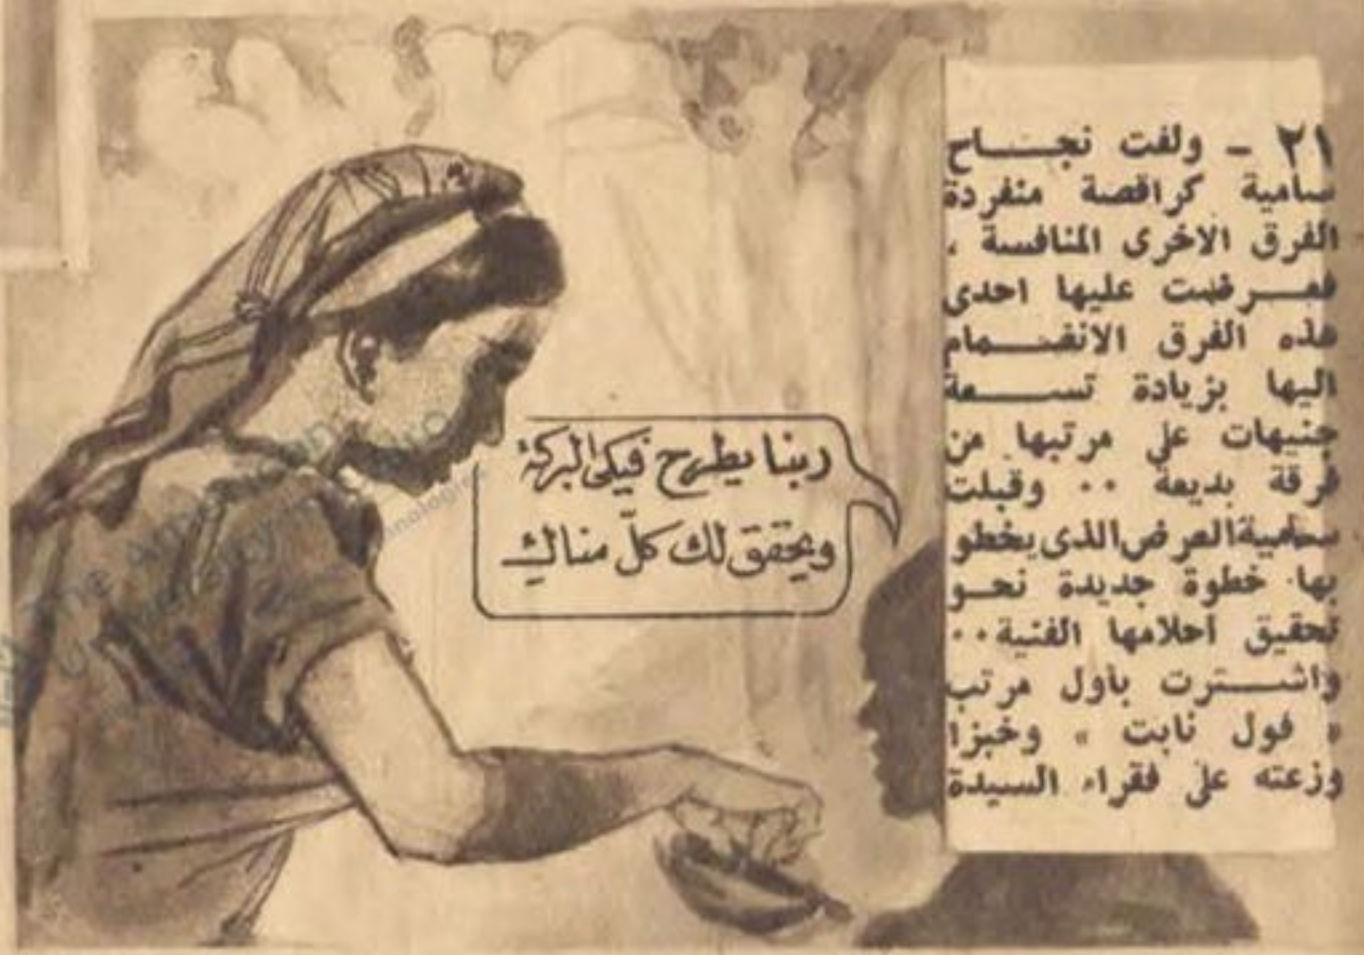 ٢١ - ولفت نجـــاح
سامية كراقصة منفردة
الفرق الاخرى المنافسة ،
فعــرضت عليها احدى
هذه الفرق الانضــمام
اليها بزيادة تســـعة
جنيهات على مرتبها من
فرقة بديعة ٠٠ وقبلت
سامية العرض الذى يخطو
بها خطوة جديدة نحـو
تحقيق أحلامها الفنية ٠٠
واشـــترت بأول مرتب
« فول نابت » وخبزا
وزعته على فقراء السيدة
ربنا يطرح فيكى البركة
ويحقق لك كلّ مناكِ